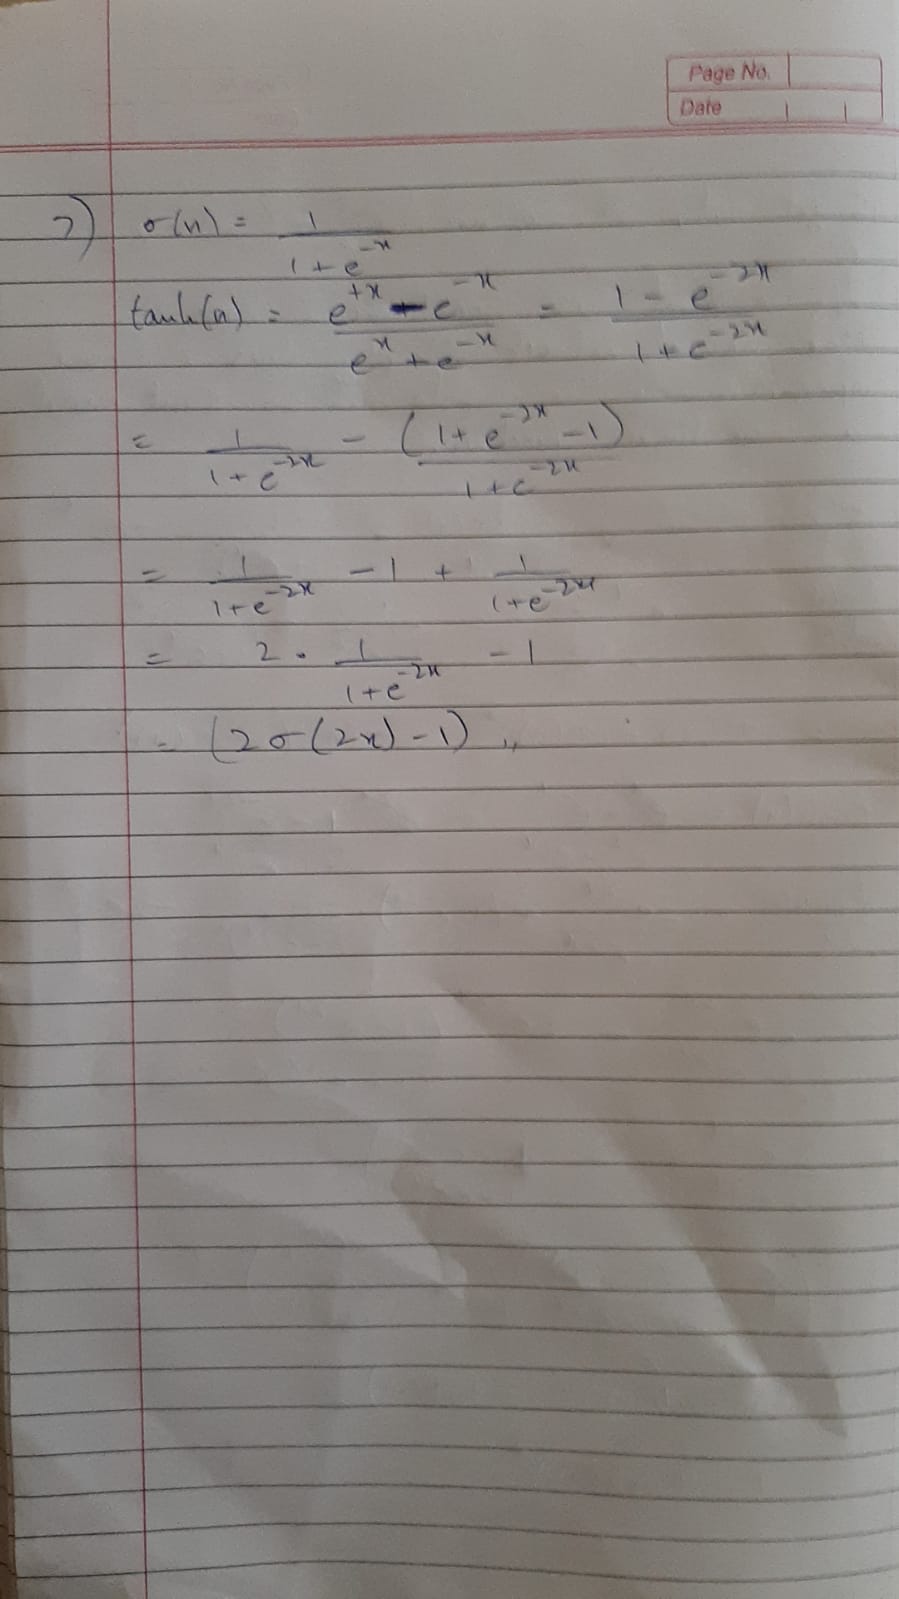 Page No.
Date
7) σ(x) = 1 / (1 + e^-x)
tanh(x) = (e^+x - e^-x) / (e^x + e^-x) = (1 - e^-2x) / (1 + e^-2x)
= 1 / (1 + e^-2x) - (1 + e^-2x - 1) / (1 + e^-2x)
= 1 / (1 + e^-2x) - 1 + 1 / (1 + e^-2x)
= 2 · 1 / (1 + e^-2x) - 1
= (2σ(2x) - 1) ,,